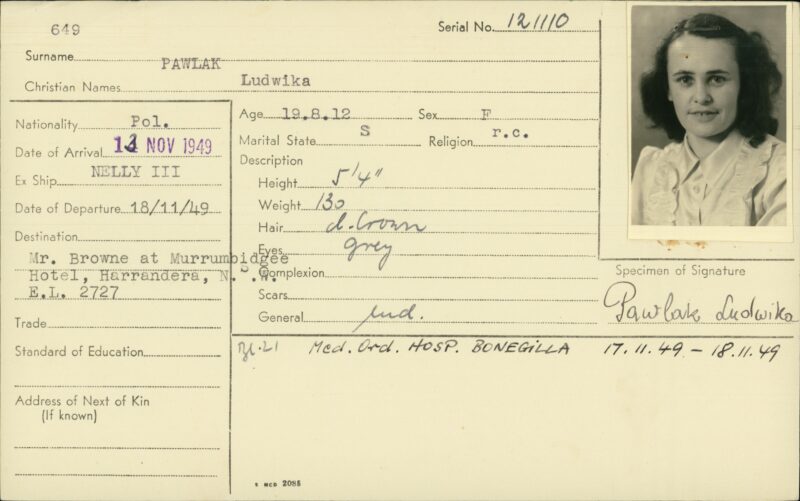 649
Serial No. 121110
Surname PAWLAK
Christian Names Ludwika
Nationality Pol.
Date of Arrival NOV 1949
Ex Ship NELLY III
Date of Departure 18/11/49
Destination
Mr. Browne at Murrumbidgee
Hotel, Harrandera, N.S.W.
E.L. 2727
Trade
Standard of Education
Address of Next of Kin
(If known)
Age 19.8.12 Sex F
Marital State S Religion r.c.
Description
Height 5'4"
Weight 130
Hair d. brown
Eyes grey
Complexion
Scars
General
Specimen of Signature
Pawlak Ludwika
Med. Ord. HOSP. BONEGILLA 17.11.49 - 18.11.49
2085